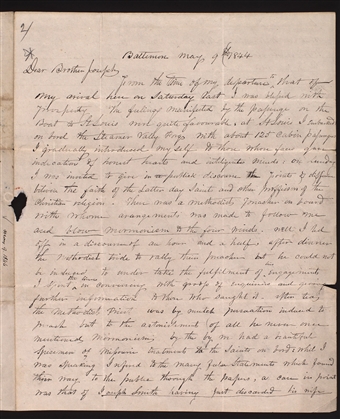 2/
Baltimore May 9th 1844
Dear Brother Joseph,
From the time of my departure, that of
my arival here on Saturday last I was blessed with
prosperity. The feelings manifested by the passenge on the
Boat to St Louis were quite favourable. at St Louis I embarked
on board the Steamer Valley Forge with about 125 Cabin passenge
I gradually introduced my self to those whose faces gave
indications of honest hearts and inteligent minds: on sunday
I was invited to give in a public discourse the points of difference
between the faith of the latter day Saints and other professions of the
christian religion. There was a methodist preacher on board
with whome arangements was made to follow me
and blow Mormonism to the four winds. well I led
off in a discourse of an hour and a half after dinner
the Methodist tride to rally their preacher but he could not
be induced to under take the fulfilment of his engagement
I spent the time in conversing with groops of enquirers and giving
further information to those who saught it. after tea
the Methodist Priest was by much persuation induced to
preach but to the astonishment of all he never once
mentioned Mormonism, by the by we had a beautiful
specimen of the false statements the Saints on board while I
was speaking I refered to the many false statements which found
their way to the public through the papers, a case in point
was that of Joseph Smith having just discarded his wife